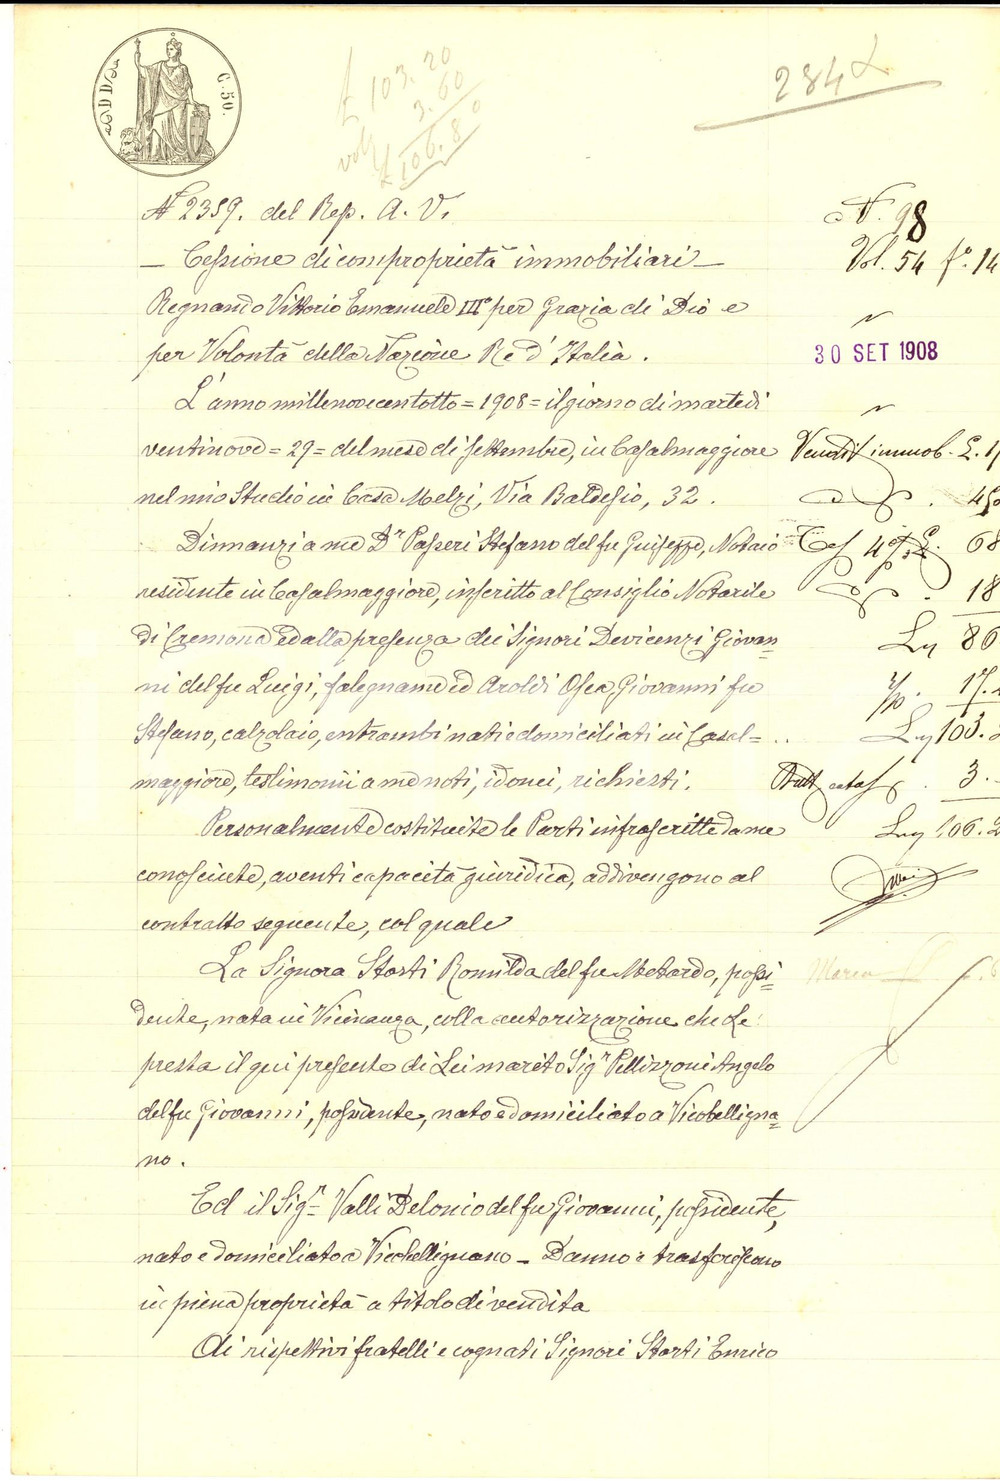 C. 50.
£ 103. 20
3. 60
£ 106. 80
284
N° 2359. del Rep. A. V.
N. 98
Vol. 54 f.° 14
— Cessione di comproprietà immobiliari —
Regnando Vittorio Emanuele III° per Grazia di Dio e
per Volontà della Nazione Re d'Italia.
30 SET 1908
L'anno millenovecentotto = 1908 = il giorno di martedì
ventinove = 29 = del mese di settembre, in Casalmaggiore
nel mio Studio in Casa Melzi, Via Baldesio, 32.
Dinnanzi a me D.r Passeri Stefano del fu Guiseppe, Notaio
residente in Casalmaggiore, inscritto al Consiglio Notarile
di Cremona ed alla presenza dei Signori Devicenzi Giovan=
ni del fu Luigi, falegname ed Aroldi Osea Giovanni fu
Stefano, calzolaio, entrambi nati e domiciliati in Casal=
maggiore, testimoni a me noti, idonei, richiesti.
Personalmente costituite le Parti infrascritte da me
conosciute, aventi capacità giuridica, addivengono al
contratto seguente, col quale
La Signora Storti Romilda del fu Metardo, possi=
dente, nata in Vicinanza, colla autorizzazione che Le
presta il qui presente di Lei marito Sig.r Pellizzoni Angelo
del fu Giovanni, possidente, nato e domiciliato a Vicobelligna=
no.
Ed il Sig.r Valli Delonio del fu Giovanni, possidente,
nato e domiciliato a Vicobellignano — Danno e trasferiscono
in piena proprietà a titolo di vendita
Ai rispettivi fratelli e cognati Signori Storti Enrico
Vendit immob. L. 1
450
68
18
86
17.
103. 2
3. -
106. 2
Marca